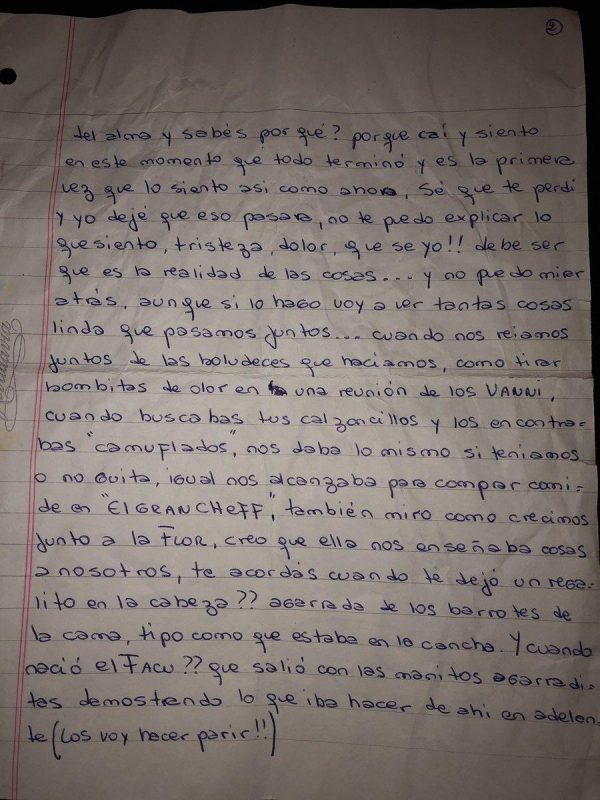 2
del alma y sabés por qué? porque caí y siento
en este momento que todo terminó y es la primera
vez que lo siento asi como ahora, Sé que te perdi
y yo dejé que eso pasara, no te puedo explicar lo
que siento, tristeza, dolor, que se yo!! debe ser
que es la realidad de las cosas... y no puedo mirar
atrás, aunque si lo hago voy a ver tantas cosas
linda que pasamos juntos... cuando nos reiamos
juntos de las boludeces que haciamos, como tirar
bombitas de olor en una reunión de los VANNI,
cuando buscabas tus calzoncillos y los encontra-
bas "camuflados", nos daba lo mismo si teniamos
o no guita, igual nos alcanzaba para comprar comi-
da en "El GRAN CHEFF", también miro como crecimos
junto a la FLOR, creo que ella nos enseñaba cosas
a nosotros, te acordás cuando te dejó un rega-
lito en la cabeza?? agarrada de los barrotes de
la cama, tipo como que estaba en la cancha. Y cuando
nació el FACU?? que salió con las manitos agarradi-
tas demostrando lo que iba hacer de ahi en adelan-
te (Los voy hacer parir!!)